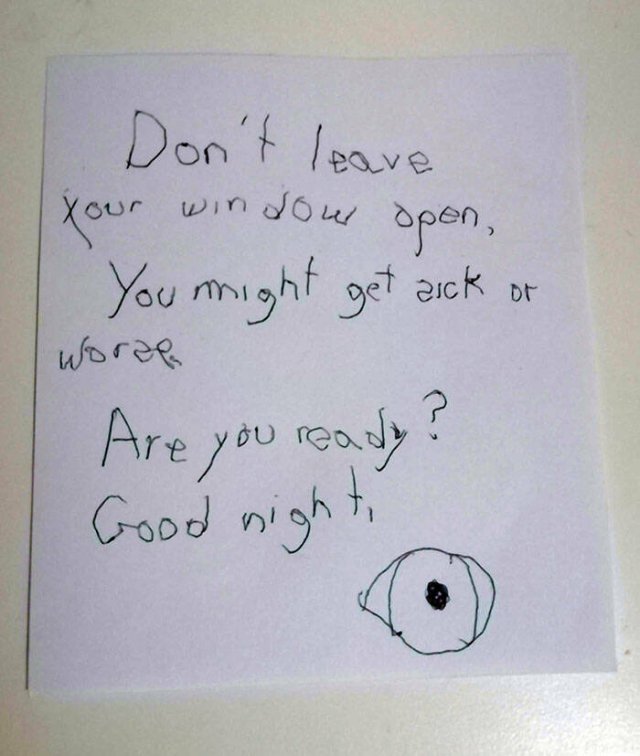 Don't leave
your window open,
You might get sick or
worse.
Are you ready?
Good night,